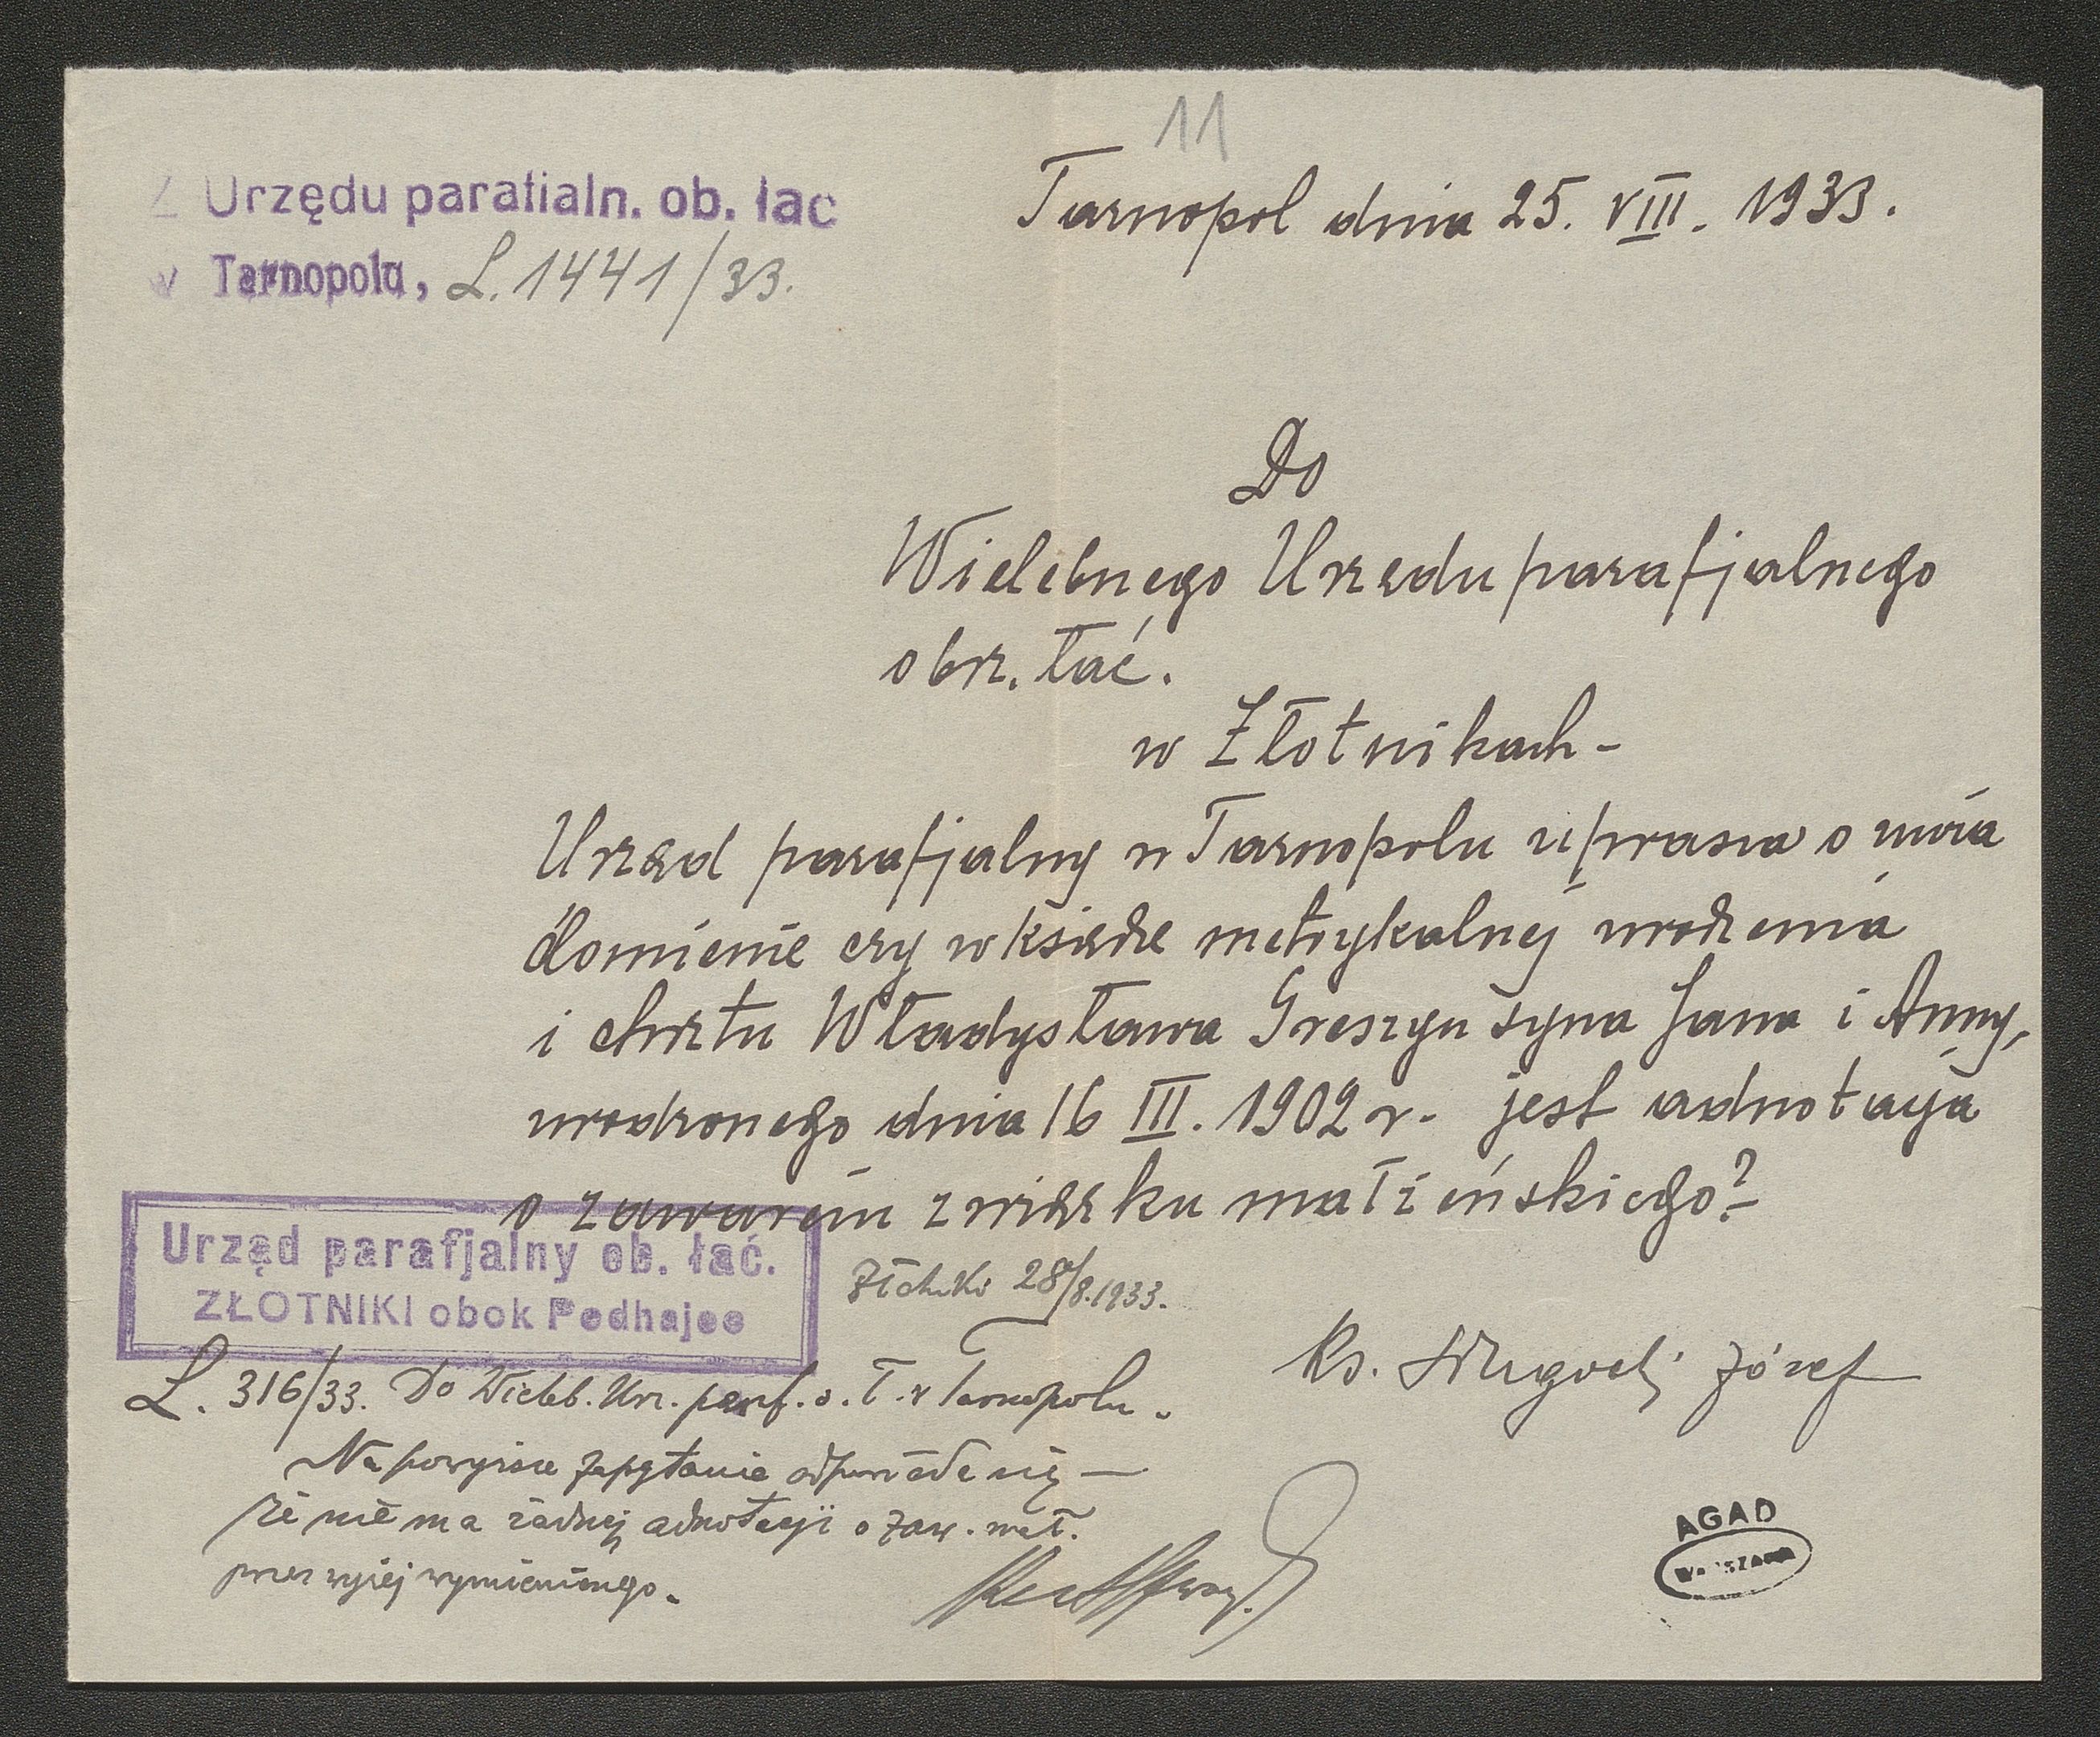 11
Z Urzędu parafialn. ob. łac
w Tarnopolu, L. 1441/33.
Tarnopol dnia 25. VIII. 1933.
Do
Wielebnego Urzędu parafjalnego
obrz. łać.
w Złotnikach -
Urząd parafjalny w Tarnopolu uprasza o uwia
domienie czy w księdze metrykalnej urodzenia
i chrztu Władysława Greszyn syna Jana i Anny,
urodzonego dnia 16 III. 1902 r. jest adnotacja
o zawarciu związku małżeńskiego?
Urząd parafjalny ob. łać.
ZŁOTNIKI obok Podhajce
Złotniki 28/8.1933.
Ks. Józef
L. 316/33. Do Wieleb. Urz. paraf. o. ł. w Tarnopolu.
Na powyższe zapytanie odpowiada się —
że nie ma żadnej adnotacji o zaw. małż.
przez wyżej wymienionego.
AGAD
WARSZAWA